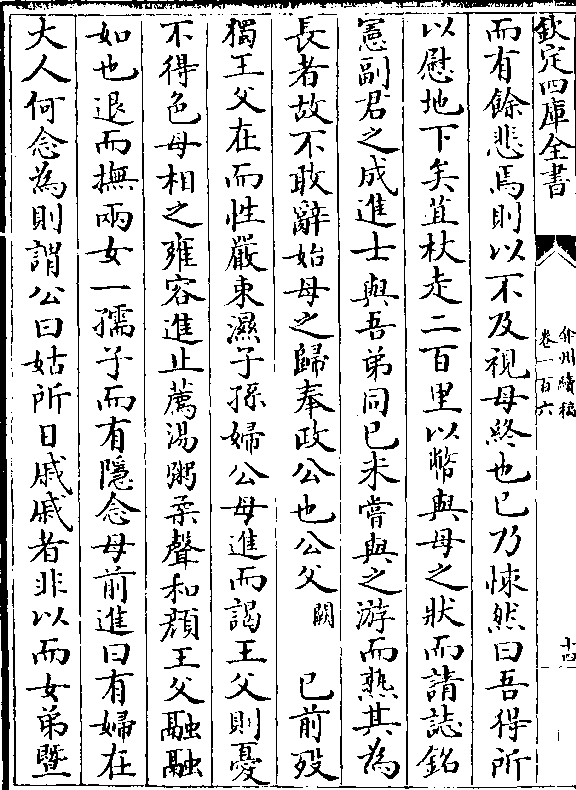 欽定四庫全書
弇州續稿
卷一百六
十四
而有餘悲焉則以不及視母終也已乃悚然曰吾得所
以慰地下矣苴杖走二百里以幣與母之狀而請誌銘
憲副君之成進士與吾弟同已未嘗與之游而熟其為
長者故不敢辭始母之歸奉政公也公父闕 已前歿
獨王父在而性嚴東濕子孫婦公母進而謁王父則憂
不得色母相之雍容進止薦湯粥柔聲和顔王父融融
如也退而撫兩女一孺子而有隱念母前進曰有婦在
大人何念為則謂公曰姑所日戚戚者非以而女弟暨